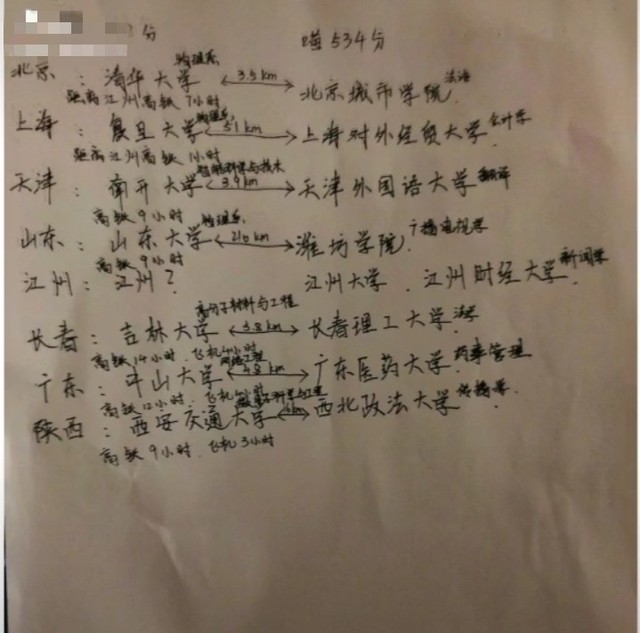 分 534分
北京：清华大学 物理系 3.5km 北京城市学院 法语
距离江州高铁7小时
上海：复旦大学 物理系 51km 上海对外经贸大学 会计学
距离江州高铁1小时
天津：南开大学 智能科学与技术 3.9km 天津外国语大学 翻译
高铁9小时
山东：山东大学 物理系 216km 潍坊学院 广播电视学
高铁9小时
江州：江州？ 江州大学．江州财经大学 新闻学
长春：吉林大学 高分子材料与工程 3.8km 长春理工大学
高铁14小时．飞机4小时
广东：中山大学 4.8km 广东医药大学 药事管理
高铁12小时．飞机小时
陕西：西安交通大学 km 西北政法大学 传播学
高铁9小时．飞机3小时